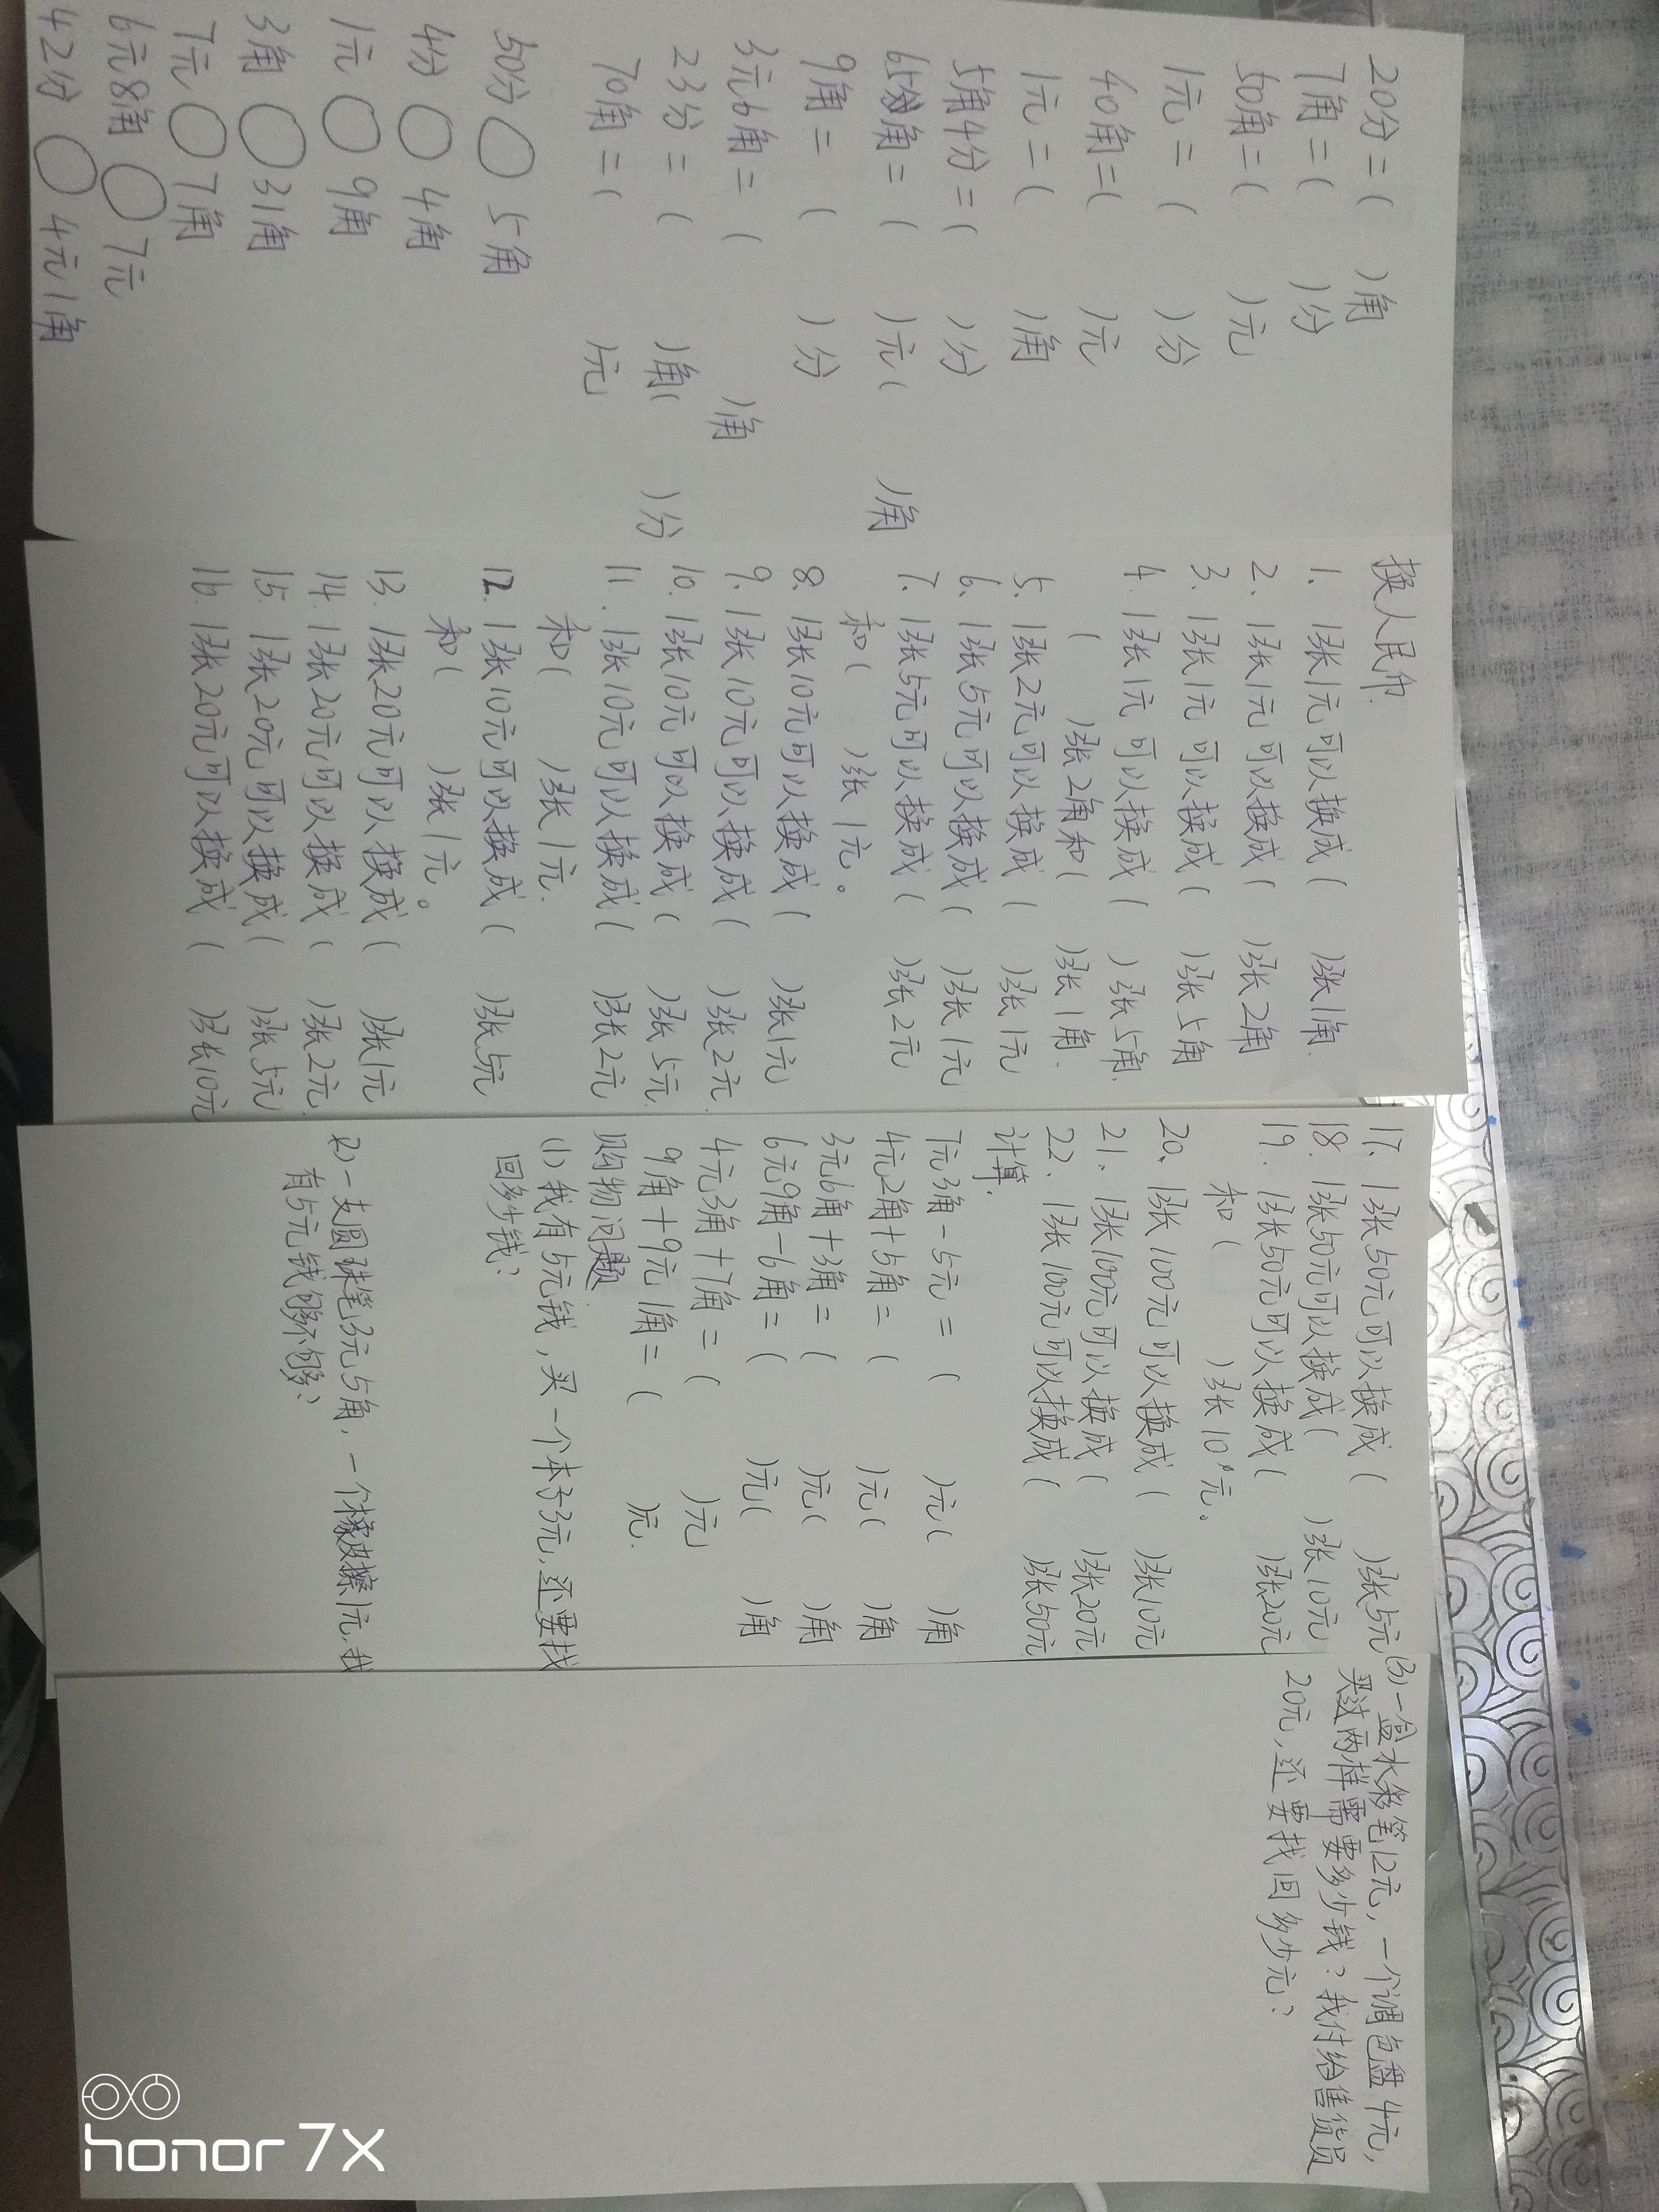 20分=( )角
7角=( )分
50角=( )元
1元=( )分
40角=( )元
1元=( )角
5角4分=( )分
65角=( )元( )角
9角=( )分
3元6角=( )角
23分=( )角( )分
70角=( )元
50分○5角
4分○4角
1元○9角
3角○31角
7元○7角
6元8角○7元
42分○4元1角
换人民币.
1. 1张1元可以换成( )张1角.
2. 1张1元可以换成( )张2角
3. 1张1元可以换成( )张5角
4. 1张1元可以换成( )张5角.
( )张2角和( )张1角.
5. 1张2元可以换成( )张1元
6. 1张5元可以换成( )张1元
7. 1张5元可以换成( )张2元
和( )张1元。
8. 1张10元可以换成( )张1元
9. 1张10元可以换成( )张2元.
10. 1张10元可以换成( )张5元.
11. 1张10元可以换成( )张2元
和( )张1元.
12. 1张10元可以换成( )张5元
和( )张1元。
13. 1张20元可以换成( )张1元
14. 1张20元可以换成( )张2元.
15. 1张20元可以换成( )张5元
16. 1张20元可以换成( )张10元
17. 1张50元可以换成( )张5元
18. 1张50元可以换成( )张10元
19. 1张50元可以换成( )张20元
和( )张10元。
20、1张100元可以换成( )张10元
21、1张100元可以换成( )张20元
22、1张100元可以换成( )张50元
计算.
7元3角-5元=( )元( )角
4元2角+5角=( )元( )角
3元6角+3角=( )元( )角
6元9角-6角=( )元( )角
4元3角+7角=( )元
9角+9元1角=( )元.
购物问题
(1)我有5元钱,买一个本子3元,还要找
回多少钱?
(2)一支圆珠笔3元5角,一个橡皮擦1元,我
有5元钱够不够?
(3)一盒水彩笔12元,一个调色盘4元,
买这两样需要多少钱?我付给售货员
20元,还要找回多少元?
honor 7X